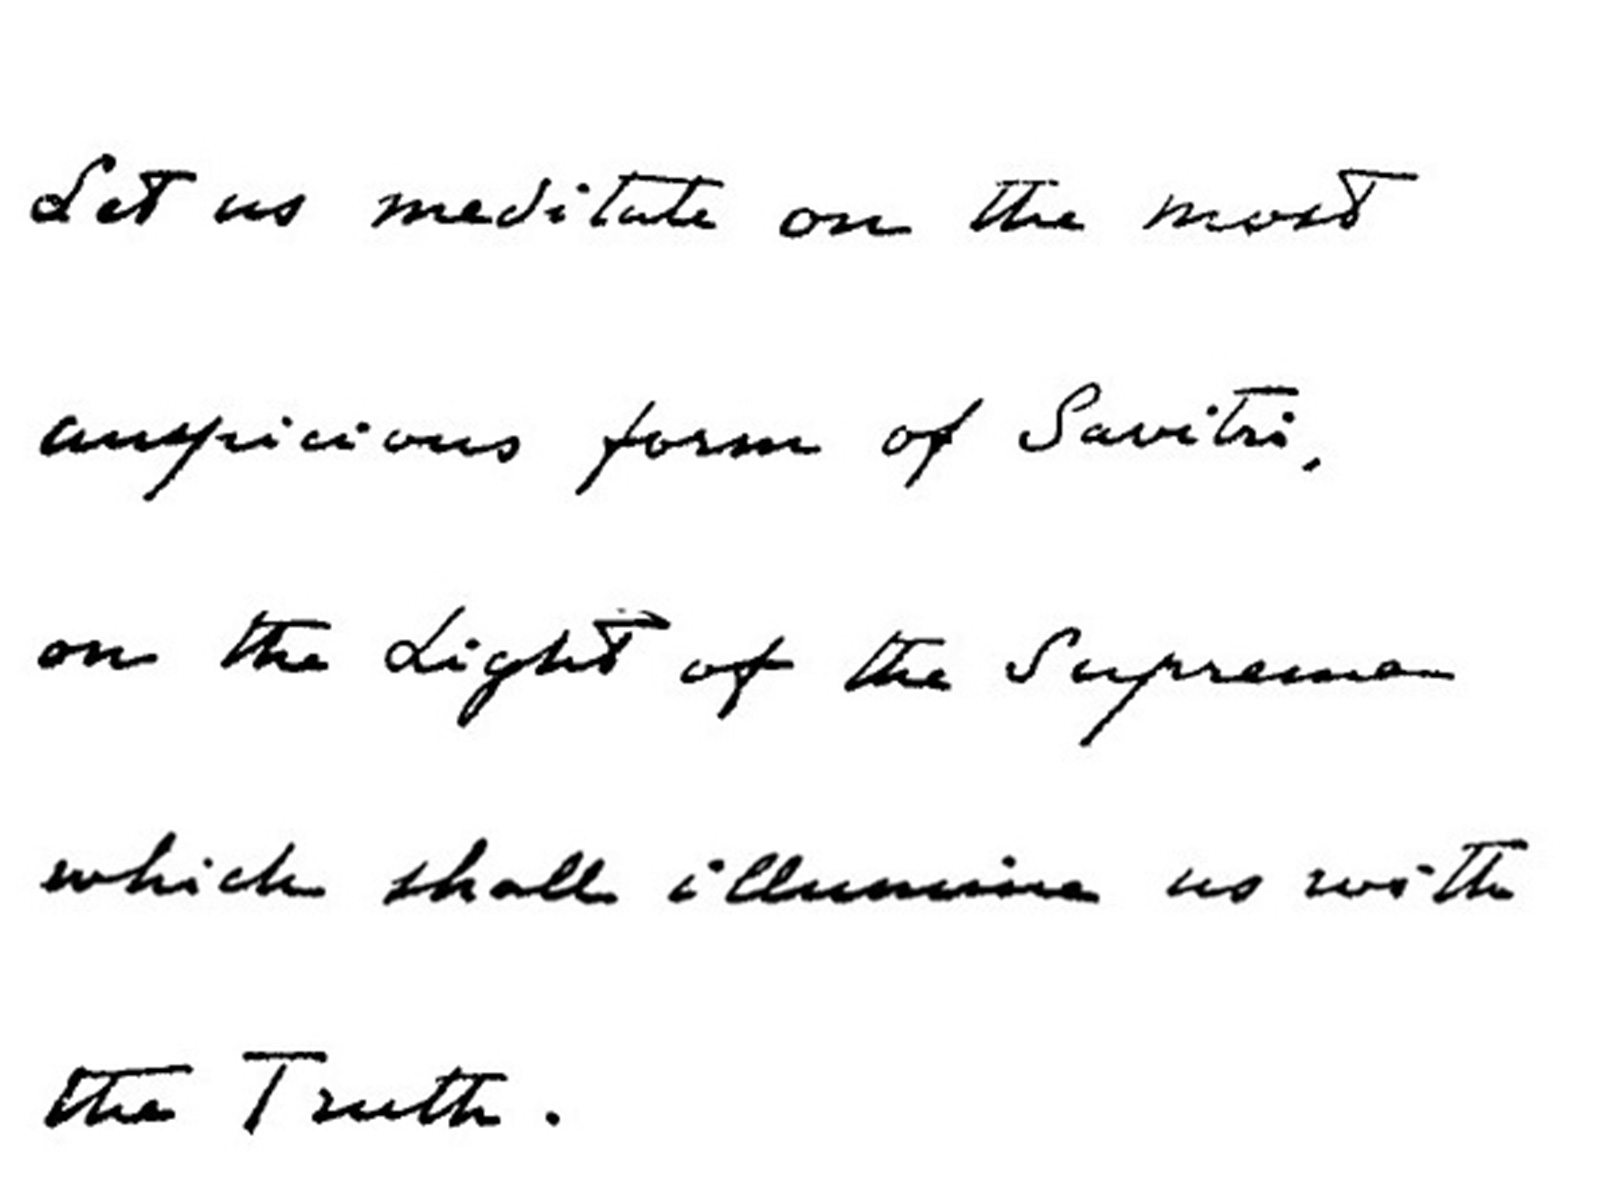 Let us meditate on the most
auspicious form of Savitri,
on the Light of the Supreme
which shall illumine us with
the Truth.